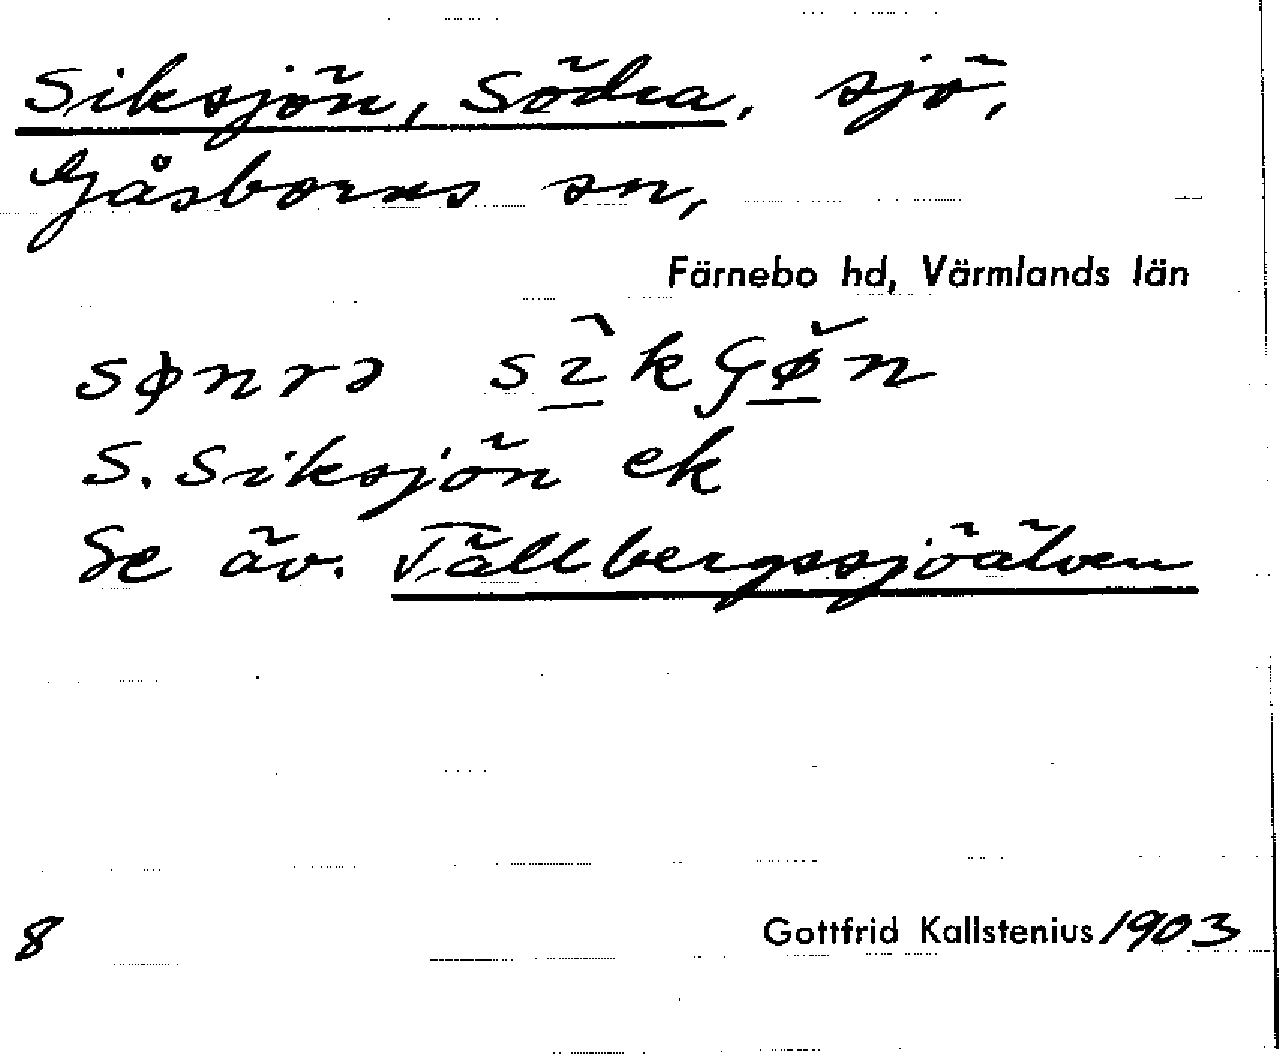 Siksjön, Södra, sjö,
Gåsborns sn,
Färnebo hd, Värmlands län
sønrə sìkʃøn
S. Siksjön ek
Se äv. Tällbergssjöälven
8 Gottfrid Kallstenius 1903